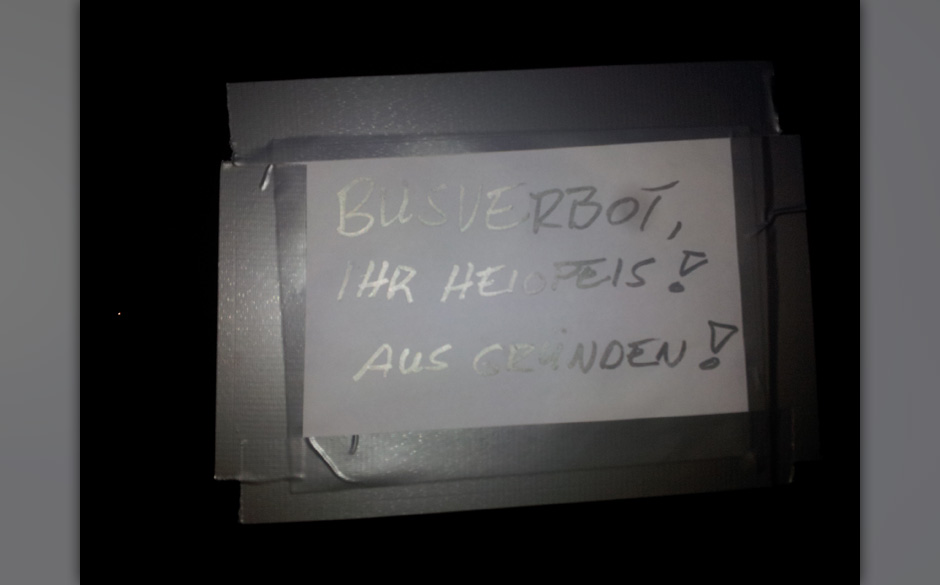 BUSVERBOT,
IHR HEIOPEIS!
AUS GRÜNDEN!